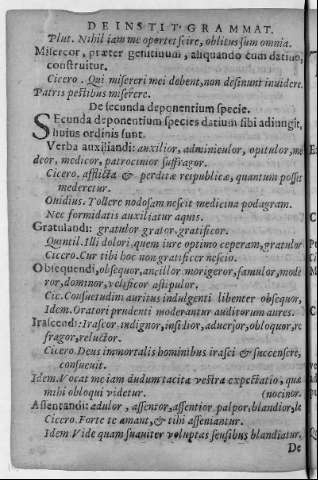 DE INSTIT. GRAMMAT.
Plut. Nihil iam me oportet scire, oblitus sum omnia.
Misereor, præter genitiuum, aliquando cum datiuo,
construitur.
Cicero. Qui misereri mei debent, non desinunt inuidere.
Patris pestibus miserere.
De secunda deponentium specie.
SEcunda deponentium species datium sibi adiungit,
huius ordinis sunt.
Verba auxiliandi: auxilior, adminiculor, opitulor, me
deor, medicor, patrocinior suffragor.
Cicero. afflictæ & perditæ reipublicæ, quantum possit
mederetur.
Ouidius. Tollere nodosam nescit medicina podagram.
Nec formidatis auxiliatur aquis.
Gratulandi: gratulor grator. gratificor.
Quintil. Illi dolori, quem iure optimo ceperam, gratulor
Cicero. Cur tibi hoc non gratificer nescio.
Obsequendi, obsequor, ancillor morigeror, famulor, mode
ror, dominor, velificor astipulor.
Cic. Consuetudim auritus indulgenti libenter obsequor,
Idem. Oratori prudenti moderantur auditorum aures.
Irascendi: Irascor. indignor, insidior, aduersor, obloquor, re
fragor, reluctor.
Cicero. Deus immortalis hominibus irasci & succensere,
consueuit.
Idem. Vocat me iam dudum tacita vestra expectatio, quæ
mihi obloqui videtur. (nocinor.
Assentandi: adulor, assentor, assentior palpor, blandior, le
Cicero. Forte te amant, & tibi assentantur.
Idem Vide quam suauiter voluptas sensibus blandiatur.
De